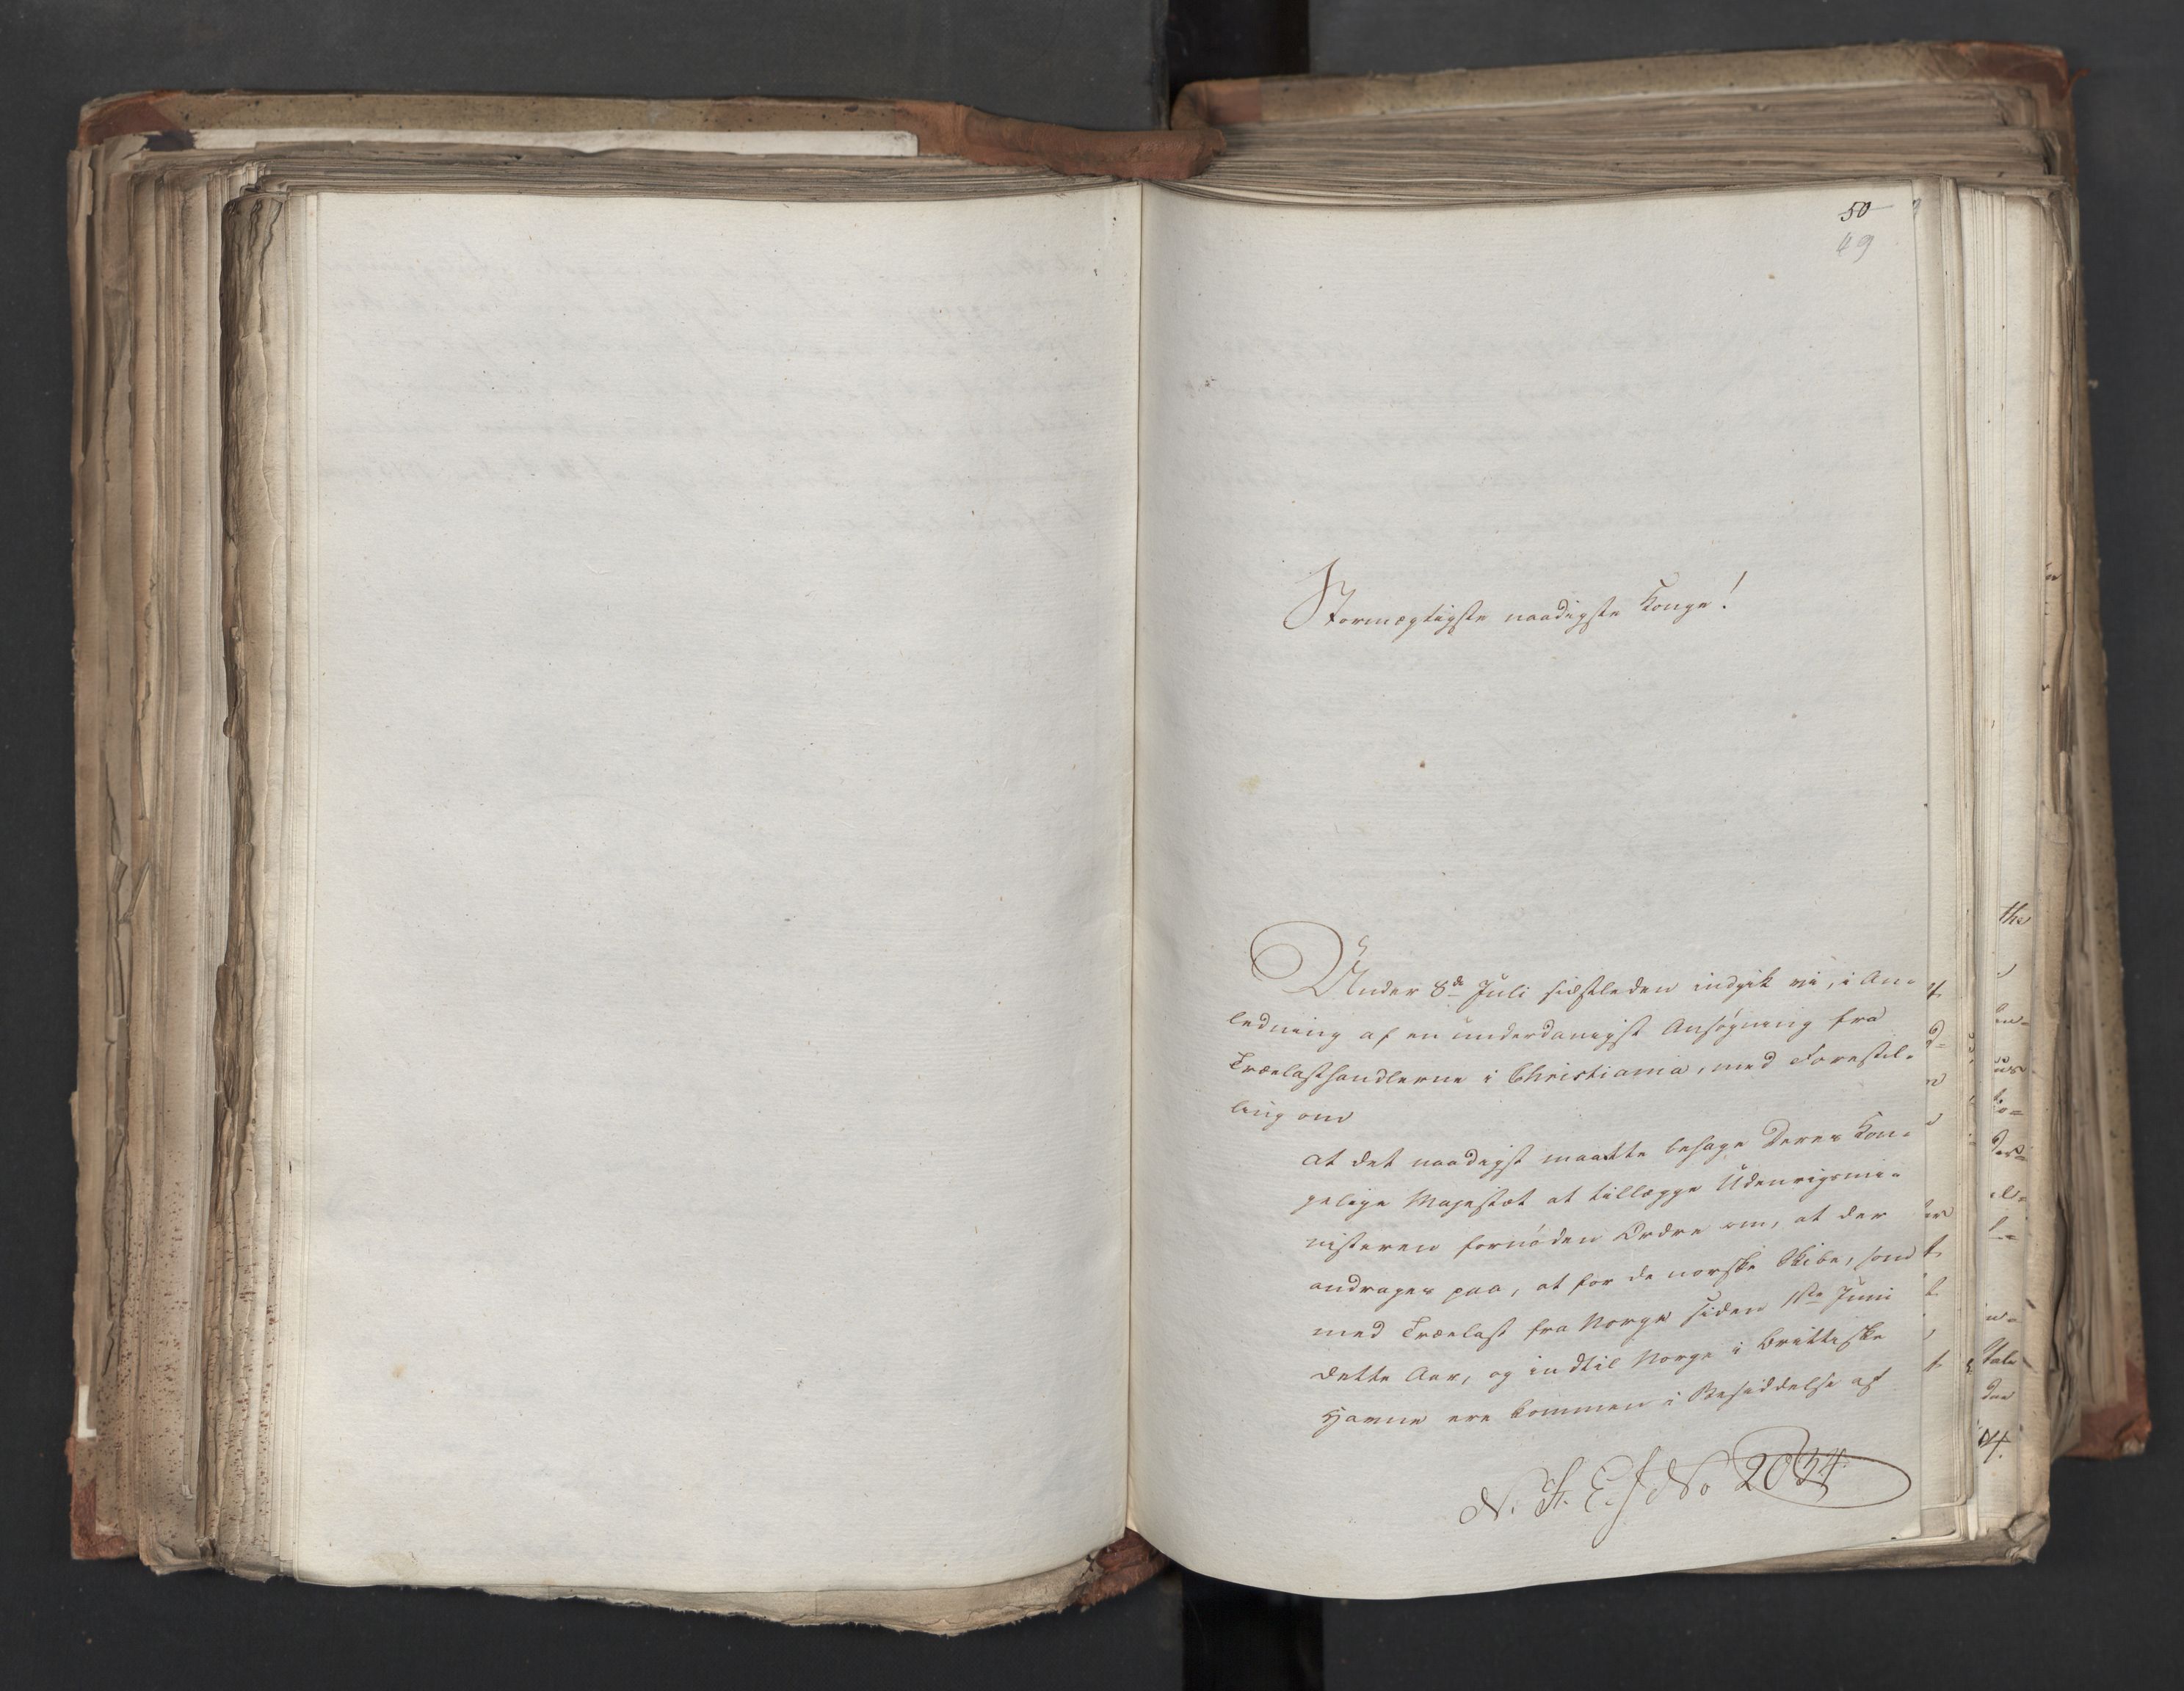 50
49
Stormægtigste naadigste Konge!
Under 8de Juli sidstleden indgik vi, i An-
ledning af en underdanigst Ansøgning fra
Trælasthandlerne i Christiania, med Forestil-
ling om
at det naadigst maatte behage Deres Kon-
gelige Majestæt at tillægge Udenrigsmi-
nisteren fornøden Ordre om, at der
andrages paa, at for de norske Skibe, som
med Trælast fra Norge siden 1ste Juni
dette Aar, og indtil Norge i Brittiske
Havne ere kommen i Besiddelse af
No 2034